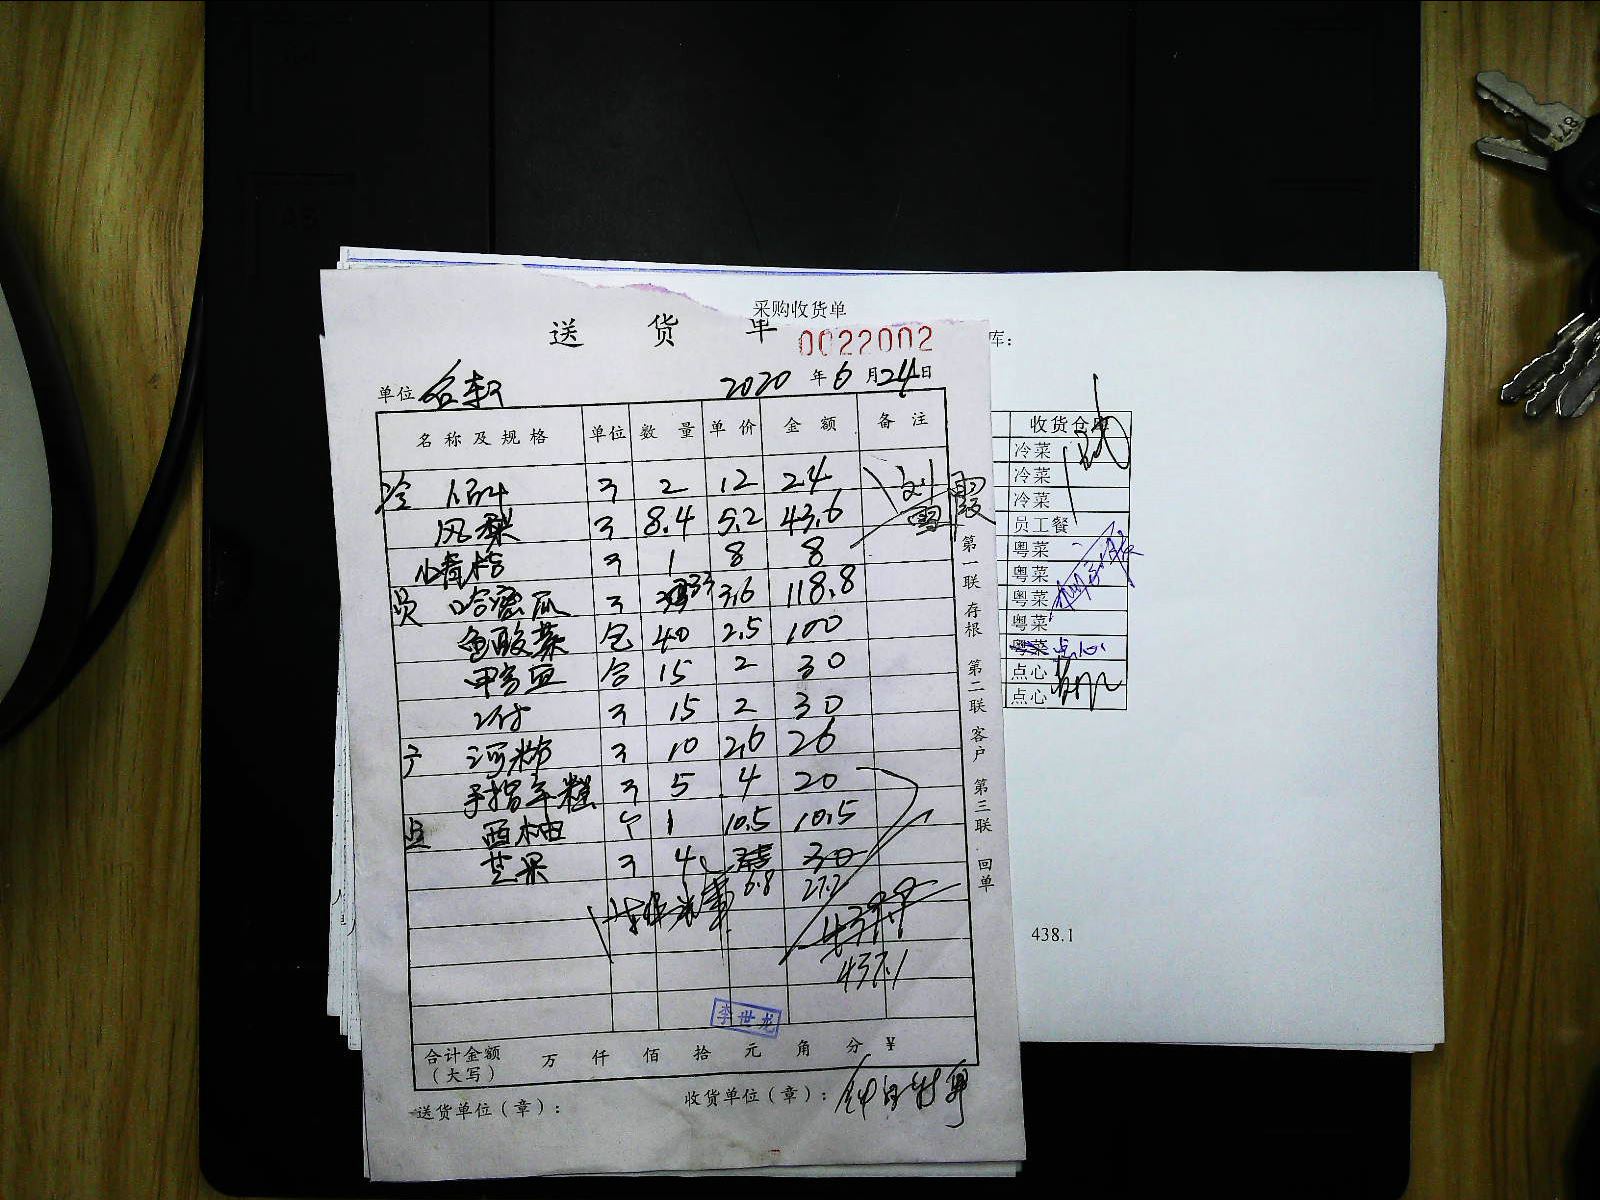 采购收货单
送 货 单
0022002
库：
单位 名轩 2020 年 6 月 24 日
名称及规格 单位 数量 单价 金额 备注
收货仓库
冷 2 12 24 刘雪霞
风梨 8.4 5.2 43.6
小青桔 1 8 8
员 哈密瓜 33 3.6 118.8
鱼酸菜 包 40 2.5 100
15 2 30
15 2 30
河粉 10 2.6 26
手指年糕 5 4 20
点 西柚 个 1 10.5 10.5
芒果 4 30
6.8 27.2
437.1
李世龙
合计金额（大写） 万 仟 佰 拾 元 角 分 ¥
送货单位（章）： 收货单位（章）：
第一联 存根 第二联 客户 第三联 回单
冷菜
冷菜
冷菜
员工餐
粤菜
粤菜
粤菜
粤菜
粤菜 点心
点心
点心
438.1